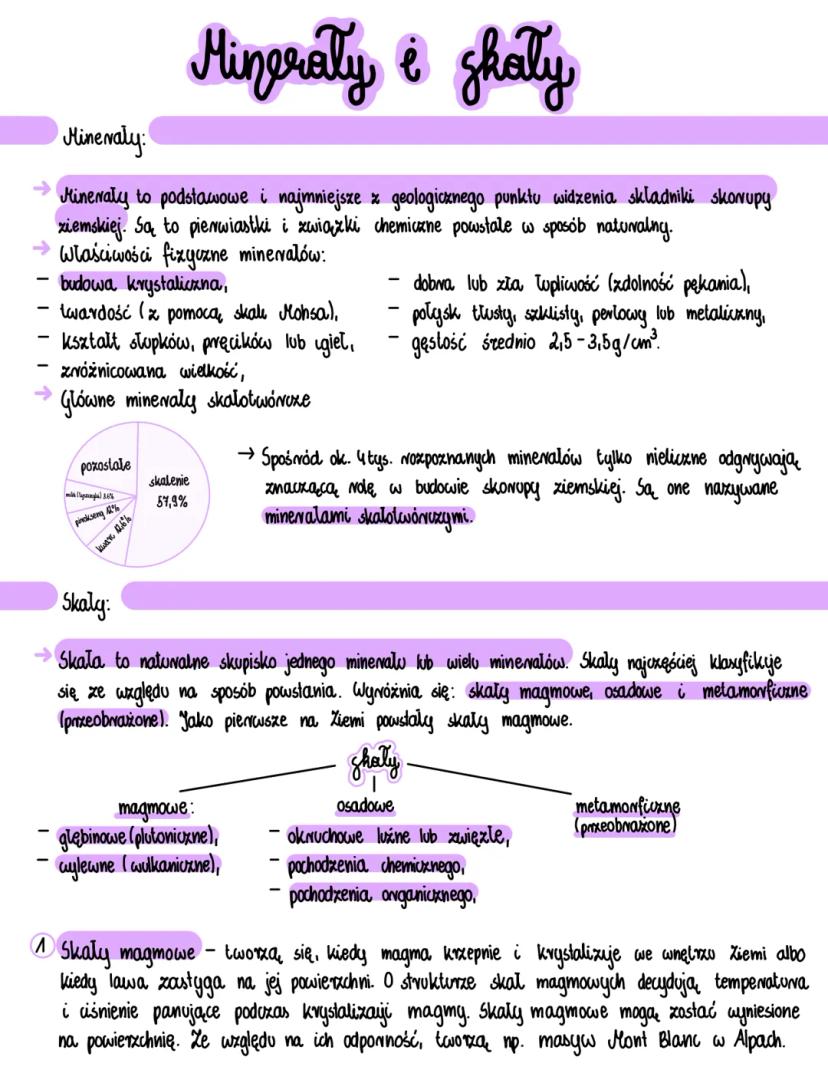 Minerały i skały
Minerały:
→ Minerały to podstawowe i najmniejsze z geologicznego punktu widzenia składniki skorupy
ziemskiej. Są to pierwiastki i związki chemiczne powstałe w sposób naturalny.
→ Właściwości fizyczne minerałów:
- budowa krystaliczna,
- twardość (z pomocą skali Mohsa),
- kształt słupków, pręcików lub igieł,
- zróżnicowana wielkość,
- dobra lub zła łupliwość (zdolność pękania),
- połysk tłusty, szklisty, perłowy lub metaliczny,
- gęstość średnio 2,5-3,5g/cm³.
→ Główne minerały skałotwórcze
pozostałe
skalenie
57,9%
miki (łyszczyki) 3,6%
pirokseny 12%
kwarc 12,6%
→ Spośród ok. 4 tys. rozpoznanych minerałów tylko nieliczne odgrywają
znaczącą rolę w budowie skorupy ziemskiej. Są one nazywane
minerałami skałotwórczymi.
Skały:
→ Skała to naturalne skupisko jednego minerału lub wielu minerałów. Skały najczęściej klasyfikuje
się ze względu na sposób powstania. Wyróżnia się: skały magmowe, osadowe i metamorficzne
(przeobrażone). Jako pierwsze na Ziemi powstały skały magmowe.
skały
magmowe:
- głębinowe (plutoniczne),
- wylewne (wulkaniczne),
osadowe
- okruchowe luźne lub zwięzłe,
- pochodzenia chemicznego,
- pochodzenia organicznego,
metamorficzne
(przeobrażone)
1 Skały magmowe - tworzą się, kiedy magma krzepnie i krystalizuje we wnętrzu Ziemi albo
kiedy lawa zastyga na jej powierzchni. O strukturze skał magmowych decydują temperatura
i ciśnienie panujące podczas krystalizacji magmy. Skały magmowe mogą zostać wyniesione
na powierzchnię. Ze względu na ich odporność, tworzą np. masyw Mont Blanc w Alpach.